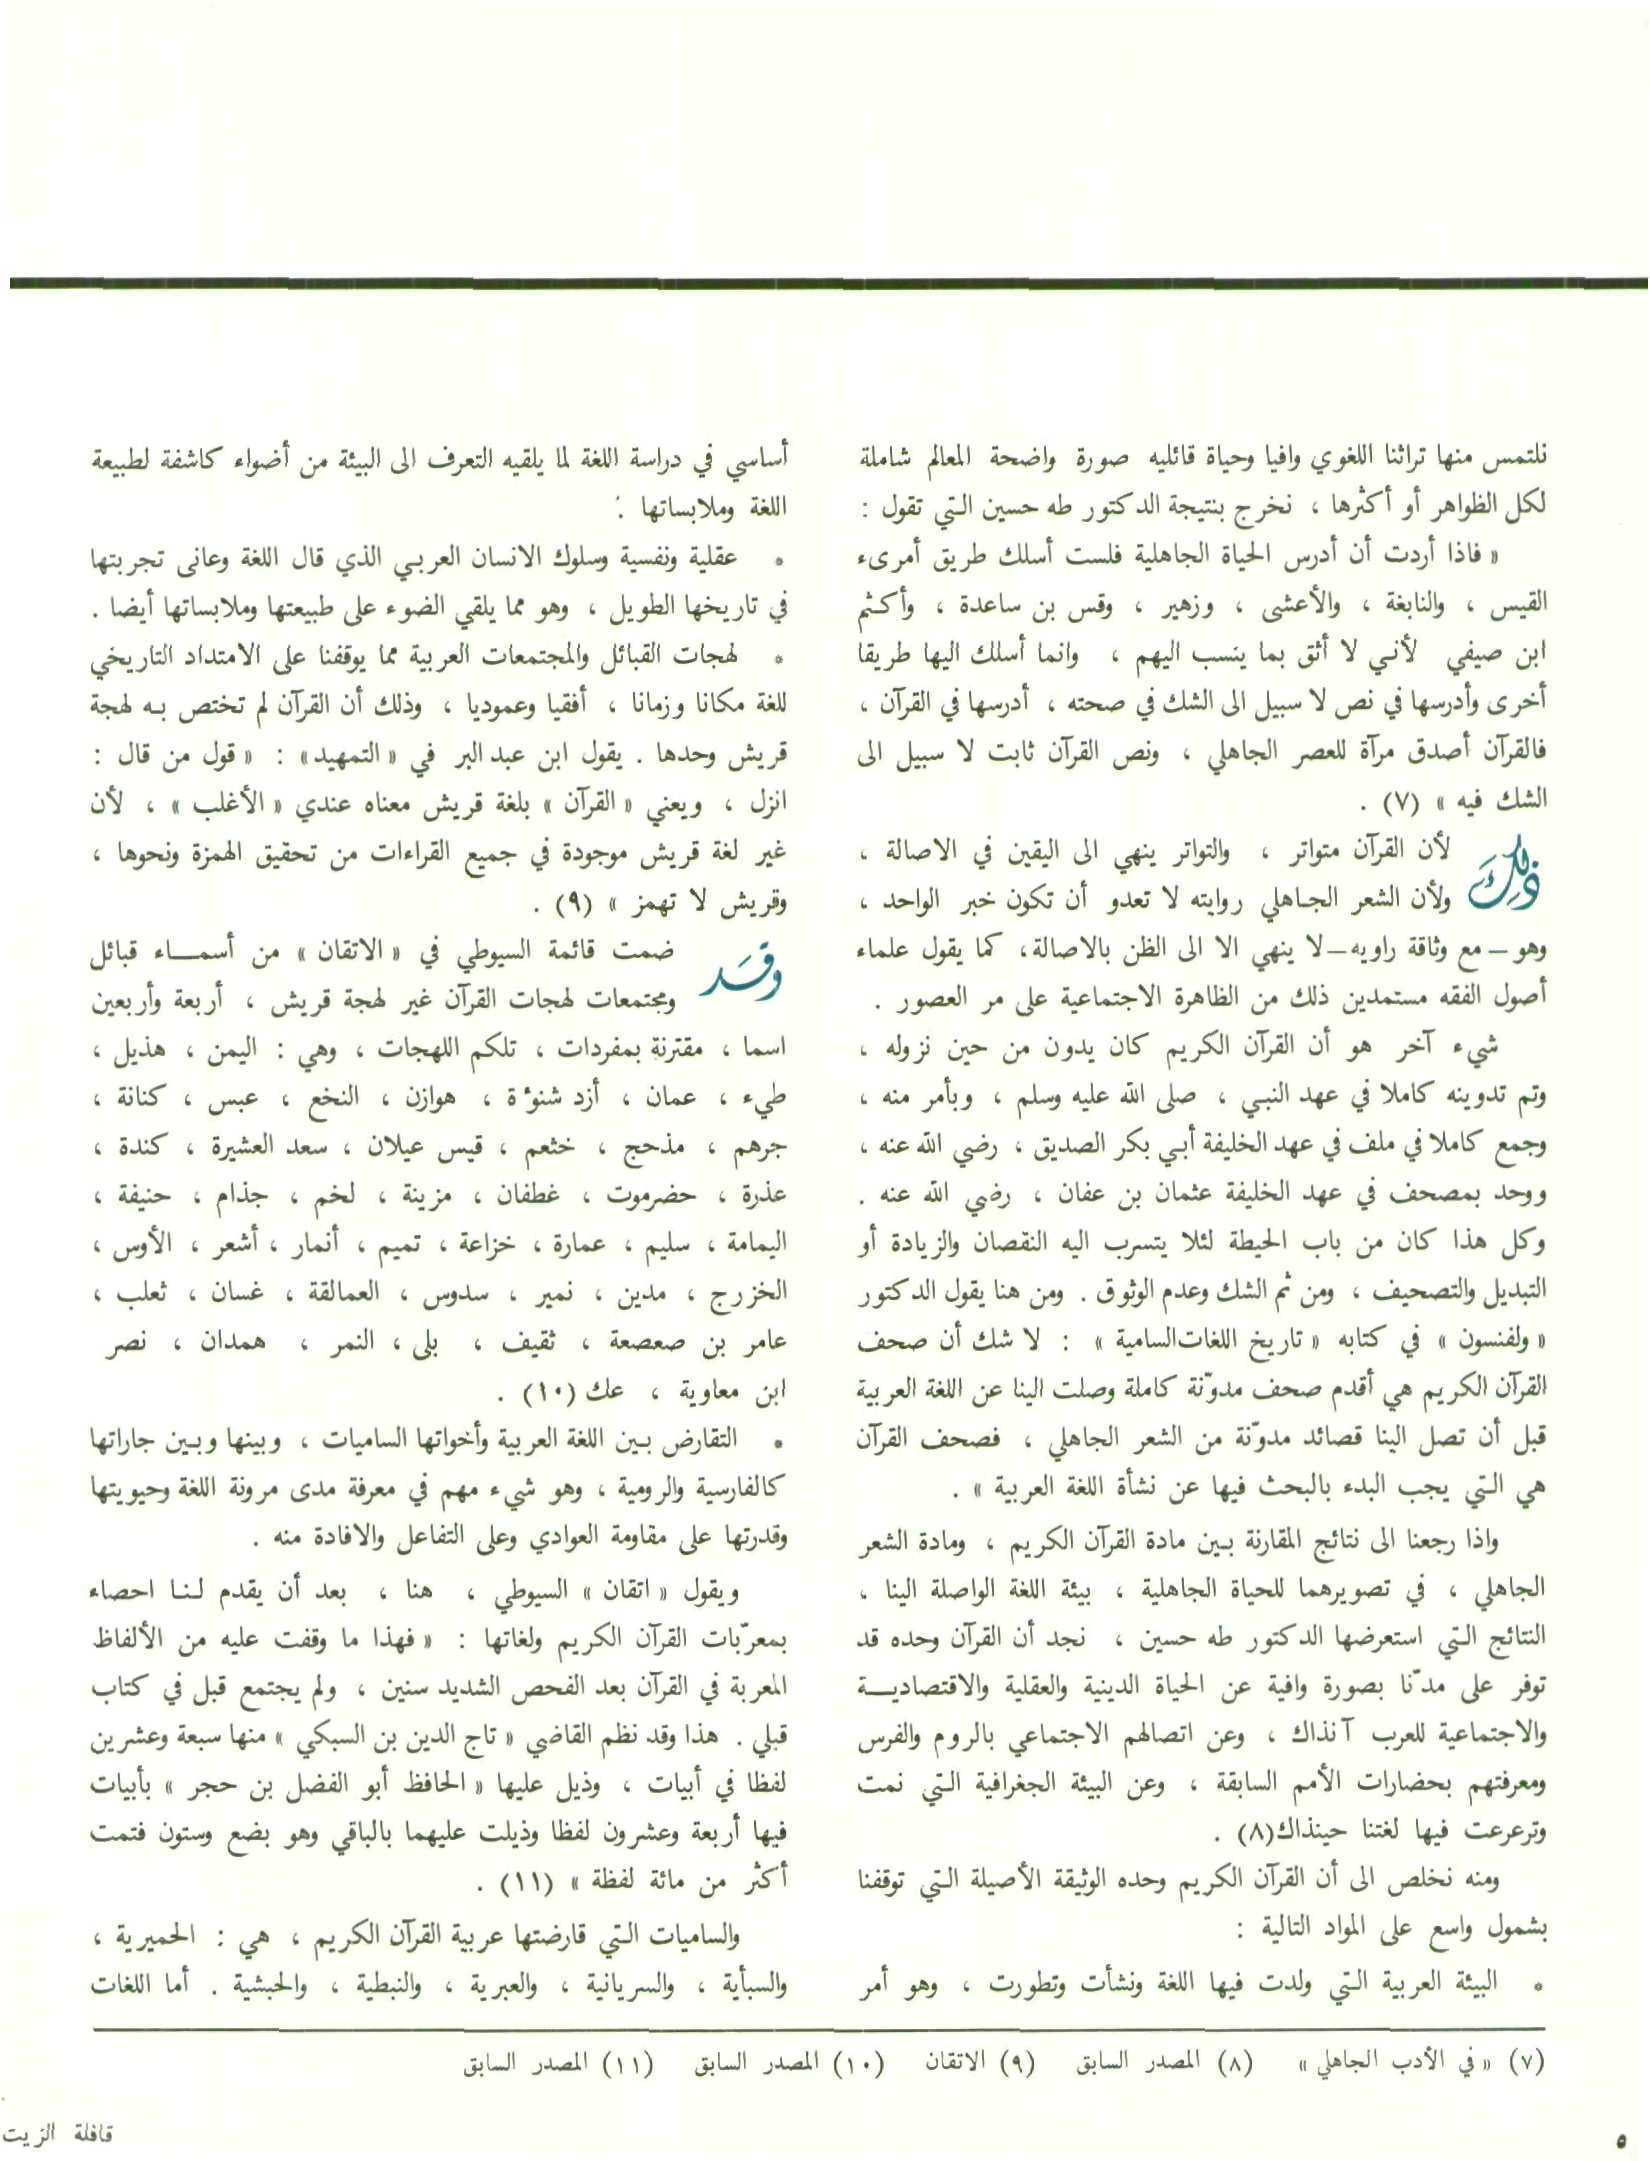 نلتمس منها تراثنا اللغوي وافيا وحياة قائليه صورة واضحة المعالم شاملة
لكل الظواهر أو أكثرها ، نخرج بنتيجة الدكتور طه حسين التي تقول :
« فاذا أردت أن أدرس الحياة الجاهلية فلست أسلك طريق أمرىء
القيس ، والنابغة ، والأعشى ، وزهير ، وقس بن ساعدة ، وأكثم
ابن صيفي لأني لا أثق بما ينسب اليهم ، وانما أسلك اليها طريقا
أخرى وأدرسها في نص لا سبيل الى الشك في صحته ، أدرسها في القرآن ،
فالقرآن أصدق مرآة للعصر الجاهلي ، ونص القرآن ثابت لا سبيل الى
الشك فيه » (٧) .
ذلك لأن القرآن متواتر ، والتواتر ينهي الى اليقين في الاصالة ،
ولأن الشعر الجاهلي روايته لا تعدو أن تكون خبر الواحد ،
وهو – مع وثاقة راويه – لا ينهي الا الى الظن بالاصالة ، كما يقول علماء
أصول الفقه مستمدين ذلك من الظاهرة الاجتماعية على مر العصور .
شيء آخر هو أن القرآن الكريم كان يدون من حين نزوله ،
وتم تدوينه كاملا في عهد النبي ، صلى الله عليه وسلم ، وبأمر منه ،
وجمع كاملا في ملف في عهد الخليفة أبي بكر الصديق ، رضي الله عنه ،
ووحد بمصحف في عهد الخليفة عثمان بن عفان ، رضي الله عنه .
وكل هذا كان من باب الحيطة لئلا يتسرب اليه النقصان والزيادة أو
التبديل والتصحيف ، ومن ثم الشك وعدم الوثوق . ومن هنا يقول الدكتور
« ولفنسون » في كتابه « تاريخ اللغات السامية » : لا شك أن صحف
القرآن الكريم هي أقدم صحف مدوّنة كاملة وصلت الينا عن اللغة العربية
قبل أن تصل الينا قصائد مدوّنة من الشعر الجاهلي ، فصحف القرآن
هي التي يجب البدء بالبحث فيها عن نشأة اللغة العربية » .
واذا رجعنا الى نتائج المقارنة بين مادة القرآن الكريم ، ومادة الشعر
الجاهلي ، في تصويرهما للحياة الجاهلية ، بيئة اللغة الواصلة الينا ،
النتائج التي استعرضها الدكتور طه حسين ، نجد أن القرآن وحده قد
توفر على مدّنا بصورة وافية عن الحياة الدينية والعقلية والاقتصاديـة
والاجتماعية للعرب آنذاك ، وعن اتصالهم الاجتماعي بالروم والفرس
ومعرفتهم بحضارات الأمم السابقة ، وعن البيئة الجغرافية التي نمت
وترعرعت فيها لغتنا حينذاك(٨) .
ومنه نخلص الى أن القرآن الكريم وحده الوثيقة الأصيلة التي توقفنا
بشمول واسع على المواد التالية :
• البيئة العربية التي ولدت فيها اللغة ونشأت وتطورت ، وهو أمر
أساسي في دراسة اللغة لما يلقيه التعرف الى البيئة من أضواء كاشفة لطبيعة
اللغة وملابساتها .
• عقلية ونفسية وسلوك الانسان العربي الذي قال اللغة وعانى تجربتها
في تاريخها الطويل ، وهو مما يلقي الضوء على طبيعتها وملابساتها أيضا .
• لهجات القبائل والمجتمعات العربية مما يوقفنا على الامتداد التاريخي
للغة مكانا وزمانا ، أفقيا وعموديا ، وذلك أن القرآن لم تختص به لهجة
قريش وحدها . يقول ابن عبد البر في « التمهيد » : « قول من قال :
انزل ، ويعني « القرآن » بلغة قريش معناه عندي « الأغلب » ، لأن
غير لغة قريش موجودة في جميع القراءات من تحقيق الهمزة ونحوها ،
وقريش لا تهمز » (٩) .
وقد ضمت قائمة السيوطي في « الاتقان » من أسمـاء قبائل
ومجتمعات لهجات القرآن غير لهجة قريش ، أربعة وأربعين
اسما ، مقترنة بمفردات ، تلكم اللهجات ، وهي : اليمن ، هذيل ،
طيء ، عمان ، أزد شنوءة ، هوازن ، النخع ، عبس ، كنانة ،
جرهم ، مذحج ، خثعم ، قيس عيلان ، سعد العشيرة ، كندة ،
عذرة ، حضرموت ، غطفان ، مزينة ، لخم ، جذام ، حنيفة ،
اليمامة ، سليم ، عمارة ، خزاعة ، تميم ، أنمار ، أشعر ، الأوس ،
الخزرج ، مدين ، نمير ، سدوس ، العمالقة ، غسان ، ثعلب ،
عامر بن صعصعة ، ثقيف ، بلى ، النمر ، همدان ، نصر
ابن معاوية ، عك (١٠) .
• التقارض بين اللغة العربية وأخواتها الساميات ، وبينها وبين جاراتها
كالفارسية والرومية ، وهو شيء مهم في معرفة مدى مرونة اللغة وحيويتها
وقدرتها على مقاومة العوادي وعلى التفاعل والافادة منه .
ويقول « اتقان » السيوطي ، هنا ، بعد أن يقدم لنا احصاء
بمعرّبات القرآن الكريم ولغاتها : « فهذا ما وقفت عليه من الألفاظ
المعربة في القرآن بعد الفحص الشديد سنين ، ولم يجتمع قبل في كتاب
قبلي . هذا وقد نظم القاضي « تاج الدين بن السبكي » منها سبعة وعشرين
لفظا في أبيات ، وذيل عليها « الحافظ أبو الفضل بن حجر » بأبيات
فيها أربعة وعشرون لفظا وذيلت عليهما بالباقي وهو بضع وستون فتمت
أكثر من مائة لفظة » (١١) .
والساميات التي قارضتها عربية القرآن الكريم ، هي : الحميرية ،
والسبأية ، والسريانية ، والعبرية ، والنبطية ، والحبشية . أما اللغات
(٧) « في الأدب الجاهلي » (٨) المصدر السابق (٩) الاتقان (١٠) المصدر السابق (١١) المصدر السابق
٥ قافلة الزيت